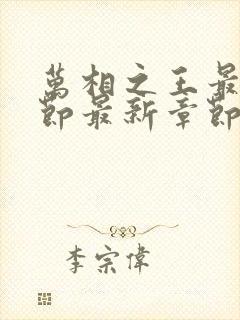 萬相之王最
節最新章節
李宗偉